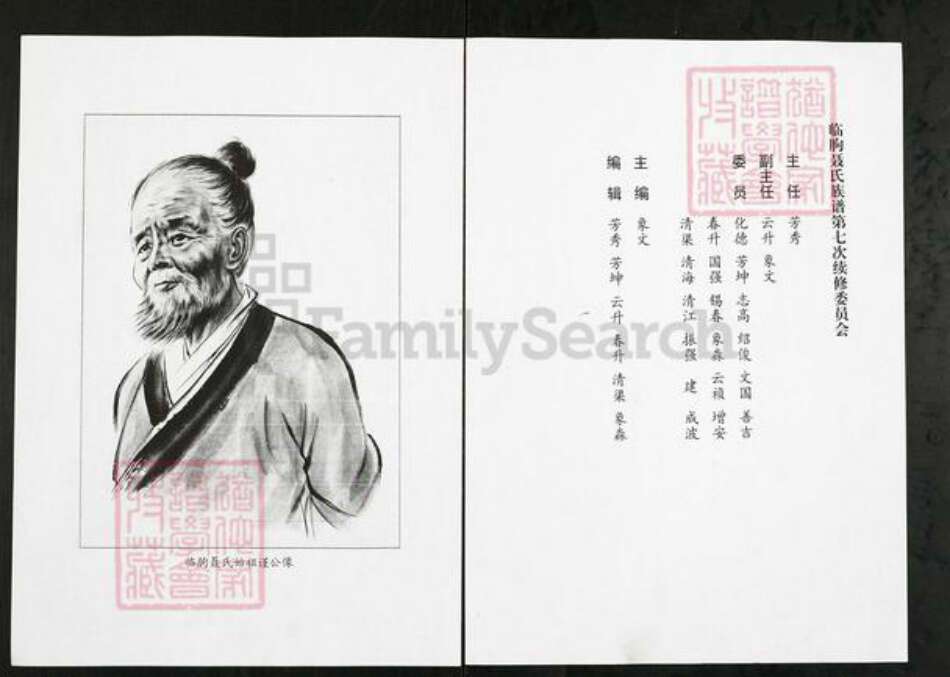 临朐聂氏族谱第七次续修委员会
主任 芳秀
副主任 云升 象文
委员 化德 芳坤 志高 绍俊 文国 善吉
春升 国强 锡春 象森 云祯 增安
清渠 清海 清江 振强 建 成波
主编 象文
编辑 芳秀 芳坤 云升 春升 清渠 象森
临朐聂氏始祖谨公像
FamilySearch